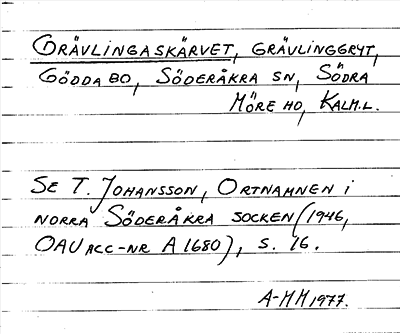 GRÄVLINGASKÄRVET, GRÄVLINGGRYT,
GÖDDA BO, SÖDERÅKRA SN, SÖDRA
MÖRE HD, KALM.L.
SE T. JOHANSSON, ORTNAMNEN I
NORRA SÖDERÅKRA SOCKEN (1946,
OAU ACC-NR A 1680), S. 16.
A-MH 1977.